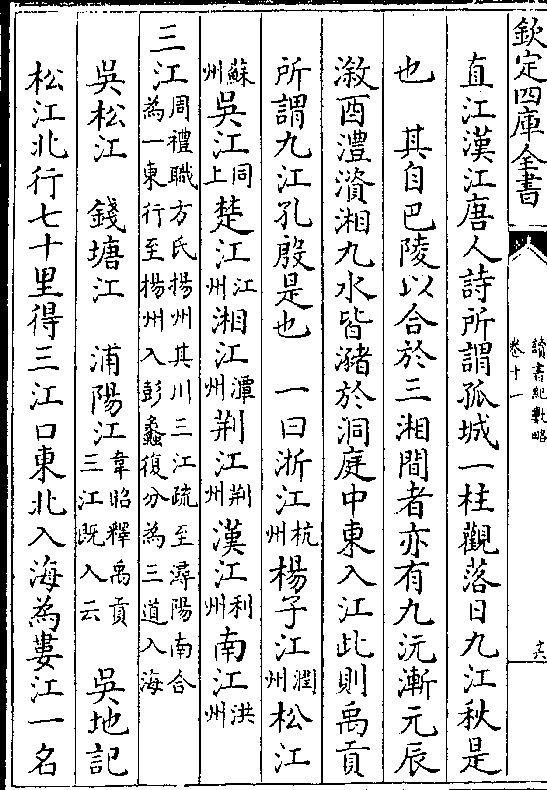 欽定四庫全書
讀書紀數略
卷十一
直江漢江唐人詩所謂孤城一柱觀落日九江秋是
也 其自巴陵以合於三湘間者亦有九沅漸元辰
漵酉澧濱湘九水皆瀦於洞庭中東入江此則禹貢
所謂九江孔殷是也 一曰浙江杭州楊子江潤州松江
蘇州吳江同上楚江江州湘江潭州荆江荆州漢江利州南江洪州
三江周禮職方氏揚州其川三江疏至潯陽南合為一東行至揚州入彭蠡復分為三道入海
吳松江 錢塘江 浦陽江韋昭釋禹貢三江既入云 吳地記
松江北行七十里得三江口東北入海為婁江一名